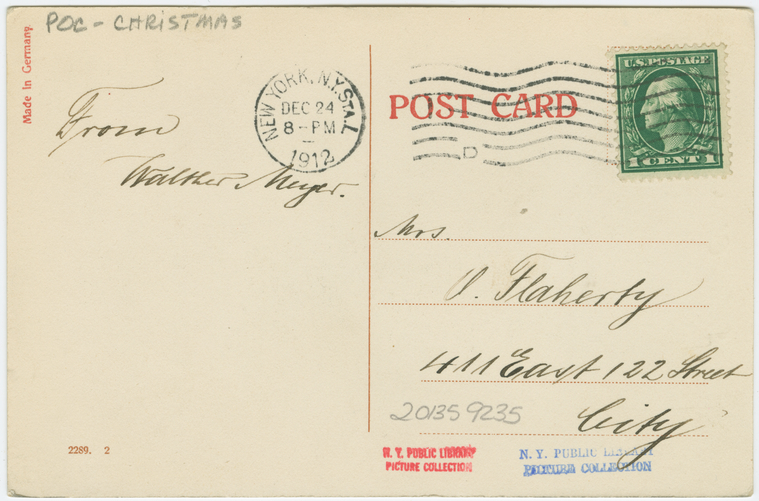 POC - CHRISTMAS
Made in Germany
From
Walther Meyer.
NEW YORK, N.Y. STA. L
DEC 24
8 - PM
1912
D
POST CARD
U.S. POSTAGE
1 CENT 1
Mrs.
O. Flaherty
411 East 122 Street
City
201359235
2289. 2
N. Y. PUBLIC LIBRARY
PICTURE COLLECTION
N. Y. PUBLIC LIBRARY
PICTURE COLLECTION